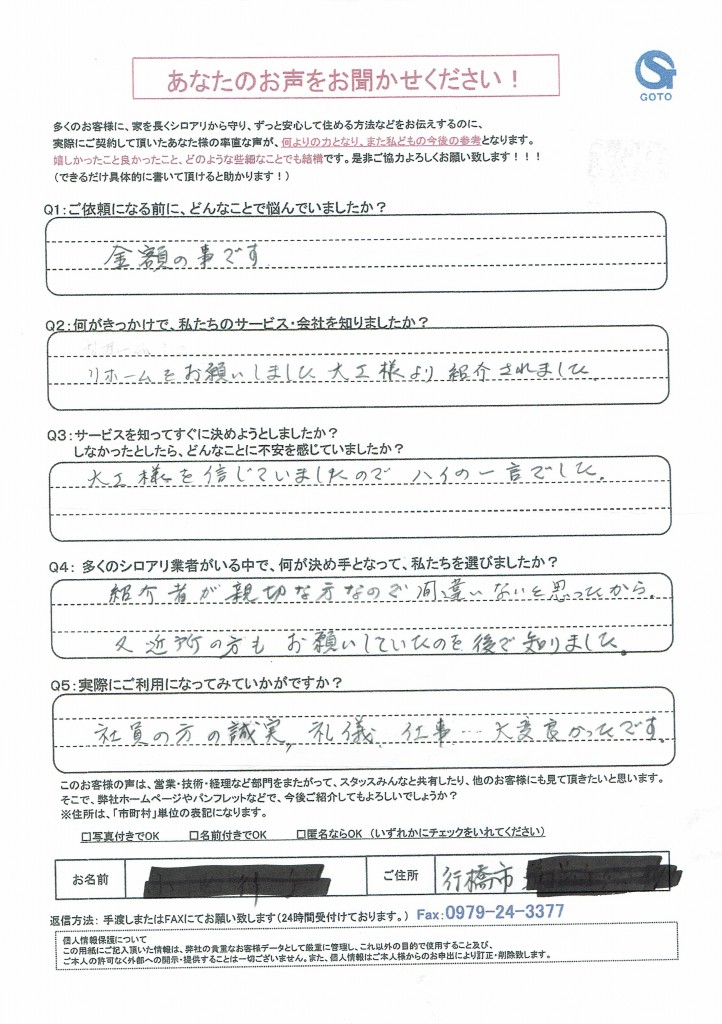 あなたのお声をお聞かせください！
GOTO
多くのお客様に、家を長くシロアリから守り、ずっと安心して住める方法などをお伝えするのに、
実際にご契約して頂いたあなた様の率直な声が、何よりの力となり、また私どもの今後の参考となります。
嬉しかったこと良かったこと、どのような些細なことでも結構です。是非ご協力よろしくお願い致します！！！
（できるだけ具体的に書いて頂けると助かります！）
Q1：ご依頼になる前に、どんなことで悩んでいましたか？
金額の事です
Q2：何がきっかけで、私たちのサービス・会社を知りましたか？
リホームをお願いしました大工様より紹介されました。
Q3：サービスを知ってすぐに決めようとしましたか？
しなかったとしたら、どんなことに不安を感じていましたか？
大工様を信じていましたので ハイの一言でした。
Q4： 多くのシロアリ業者がいる中で、何が決め手となって、私たちを選びましたか？
紹介者が親切な方なので間違いないと思ったから。
又近所の方も お願いしていたのを後で知りました。
Q5：実際にご利用になってみていかがですか？
社員の方の誠実, 礼儀, 仕事… 大変良かったです。
このお客様の声は、営業・技術・経理など部門をまたがって、スタッスみんなと共有したり、他のお客様にも見て頂きたいと思います。
そこで、弊社ホームページやパンフレットなどで、今後ご紹介してもよろしいでしょうか？
※住所は、「市町村」単位の表記になります。
□写真付きでOK □名前付きでOK □匿名ならOK （いずれかにチェックをいれてください）
お名前 ご住所 行橋市
返信方法： 手渡しまたはFAXにてお願い致します（24時間受付けております。） Fax：0979-24-3377
個人情報保護について
この用紙にご記入頂いた情報は、弊社の貴重なお客様データとして厳重に管理し、これ以外の目的で使用すること及び、
ご本人の許可なく外部への開示・提供することは一切ございません。また、個人情報はご本人様からのお申出により訂正・削除致します。